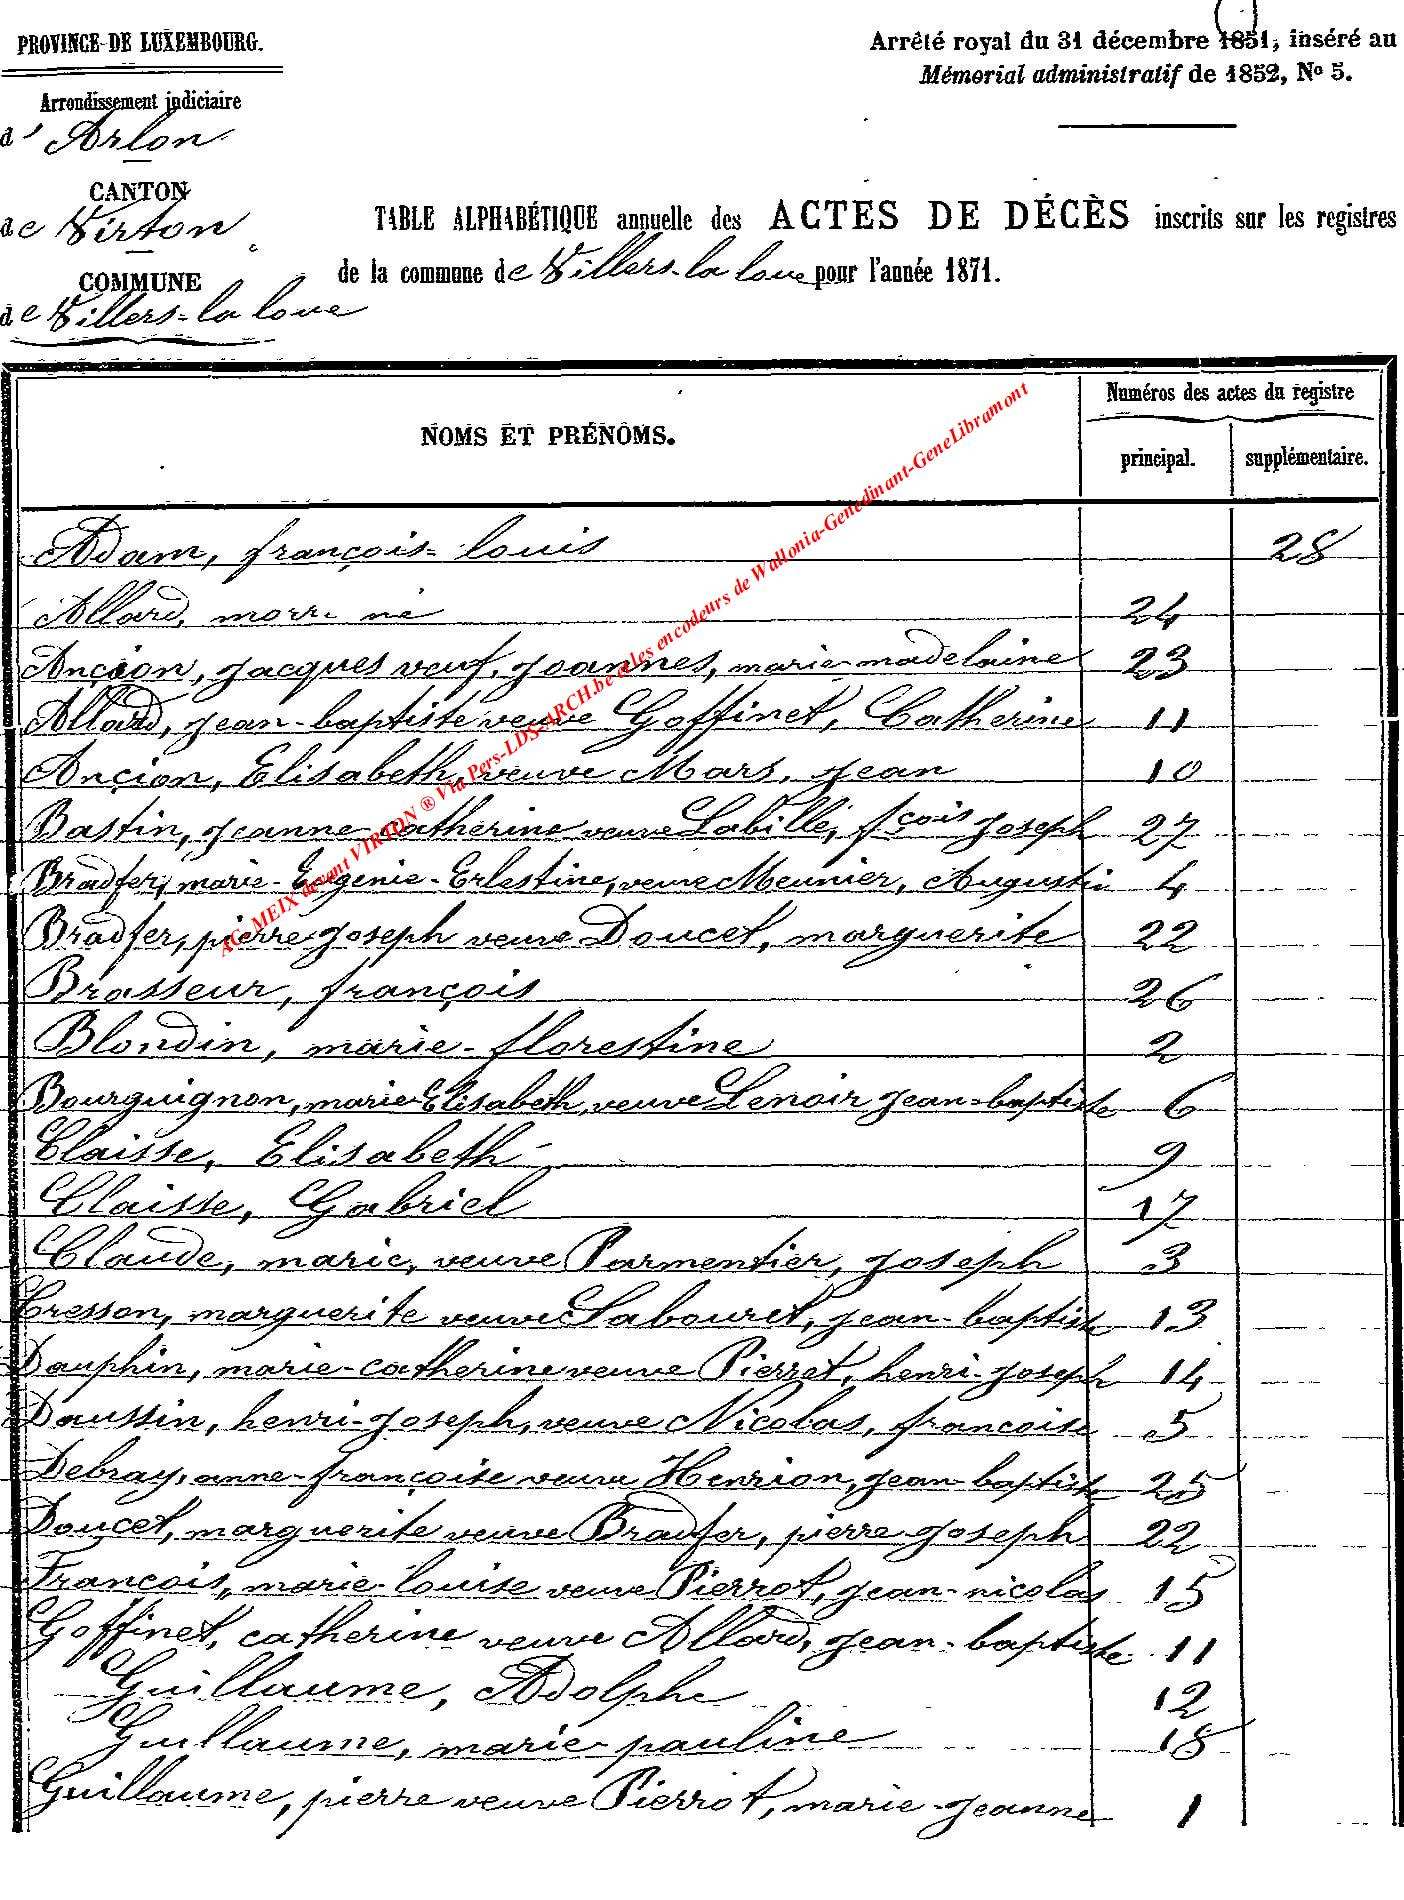 PROVINCE DE LUXEMBOURG.
Arrondissement judiciaire
d' Arlon
CANTON
de Virton
COMMUNE
de Villers-la loue
Arrêté royal du 31 décembre 1851, inséré au
Mémorial administratif de 1852, No 5.
TABLE ALPHABÉTIQUE annuelle des ACTES DE DÉCÈS inscrits sur les registres
de la commune de Villers-la loue pour l'année 1871.
NOMS ET PRÉNOMS.
Numéros des actes du registre
principal. supplémentaire.
AC MEIX devant VIRTON ® Via Pers-LDS-ARCH.be et les encodeurs de Wallonia-Genedinant-GeneLibramont
Adam, françois-louis 28
Allard, mort né 24
Ancion, Jacques veuf Joannes, marie madelaine 23
Allard, Jean-baptiste veuve Goffinet, Catherine 11
Ancion, Elisabeth, veuve Mars, Jean 10
Bastin, Jeanne catherine veuve Labille, fçois Joseph 27
Bradfer, marie-Eugenie-Erlestine, veuve Meunier, Augustin 4
Bradfer, pierre Joseph veuve Doucet, marguerite 22
Brasseur, françois 26
Blondin, marie-florestine 2
Bourguignon, marie Elisabeth, veuve Lenoir Jean-baptiste 6
Claisse, Elisabeth 9
Claisse, Gabriel 17
Claude, marie, veuve Parmentier, Joseph 3
Cresson, marguerite veuve Labouret, Jean-baptiste 13
Dauphin, marie-catherine veuve Pierret, henri-Joseph 14
Daussin, henri-Joseph, veuve Nicolas, francoise 5
Debray, anne-françoise veuve Henrion, Jean-baptiste 25
Doucet, marguerite veuve Bradfer, pierre Joseph 22
François, marie-louise veuve Pierrot, Jean-nicolas 15
Goffinet, catherine veuve Allard, Jean-baptiste 11
Guillaume, Adolphe 12
Guillaume, marie pauline 18
Guillaume, pierre veuve Pierrot, marie-Jeanne 1